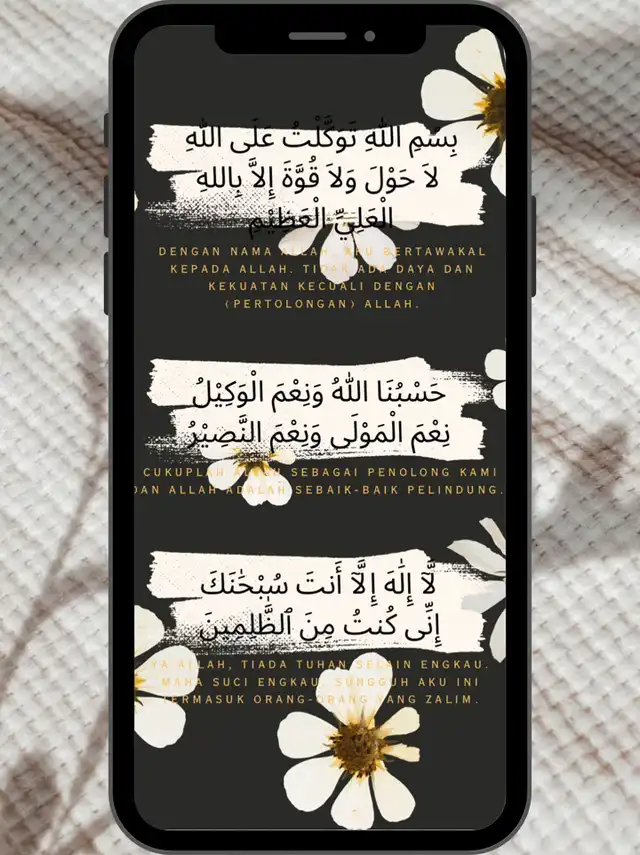 بِسْمِ اللهِ تَوَكَّلْتُ عَلَى اللهِ
لاَ حَوْلَ وَلاَ قُوَّةَ إِلاَّ بِاللهِ
الْعَلِيِّ الْعَظِيْمِ
DENGAN NAMA ALLAH, AKU BERTAWAKAL
KEPADA ALLAH. TIDAK ADA DAYA DAN
KEKUATAN KECUALI DENGAN
(PERTOLONGAN) ALLAH.
حَسْبُنَا اللهُ وَنِعْمَ الْوَكِيْلُ
نِعْمَ الْمَوْلَى وَنِعْمَ النَّصِيْرُ
CUKUPLAH ALLAH SEBAGAI PENOLONG KAMI
DAN ALLAH ADALAH SEBAIK-BAIK PELINDUNG.
لَّآ إِلَٰهَ إِلَّآ أَنتَ سُبْحَٰنَكَ
إِنِّى كُنتُ مِنَ ٱلظَّٰلِمِينَ
YA ALLAH, TIADA TUHAN SELAIN ENGKAU.
MAHA SUCI ENGKAU. SUNGGUH AKU INI
TERMASUK ORANG-ORANG YANG ZALIM.